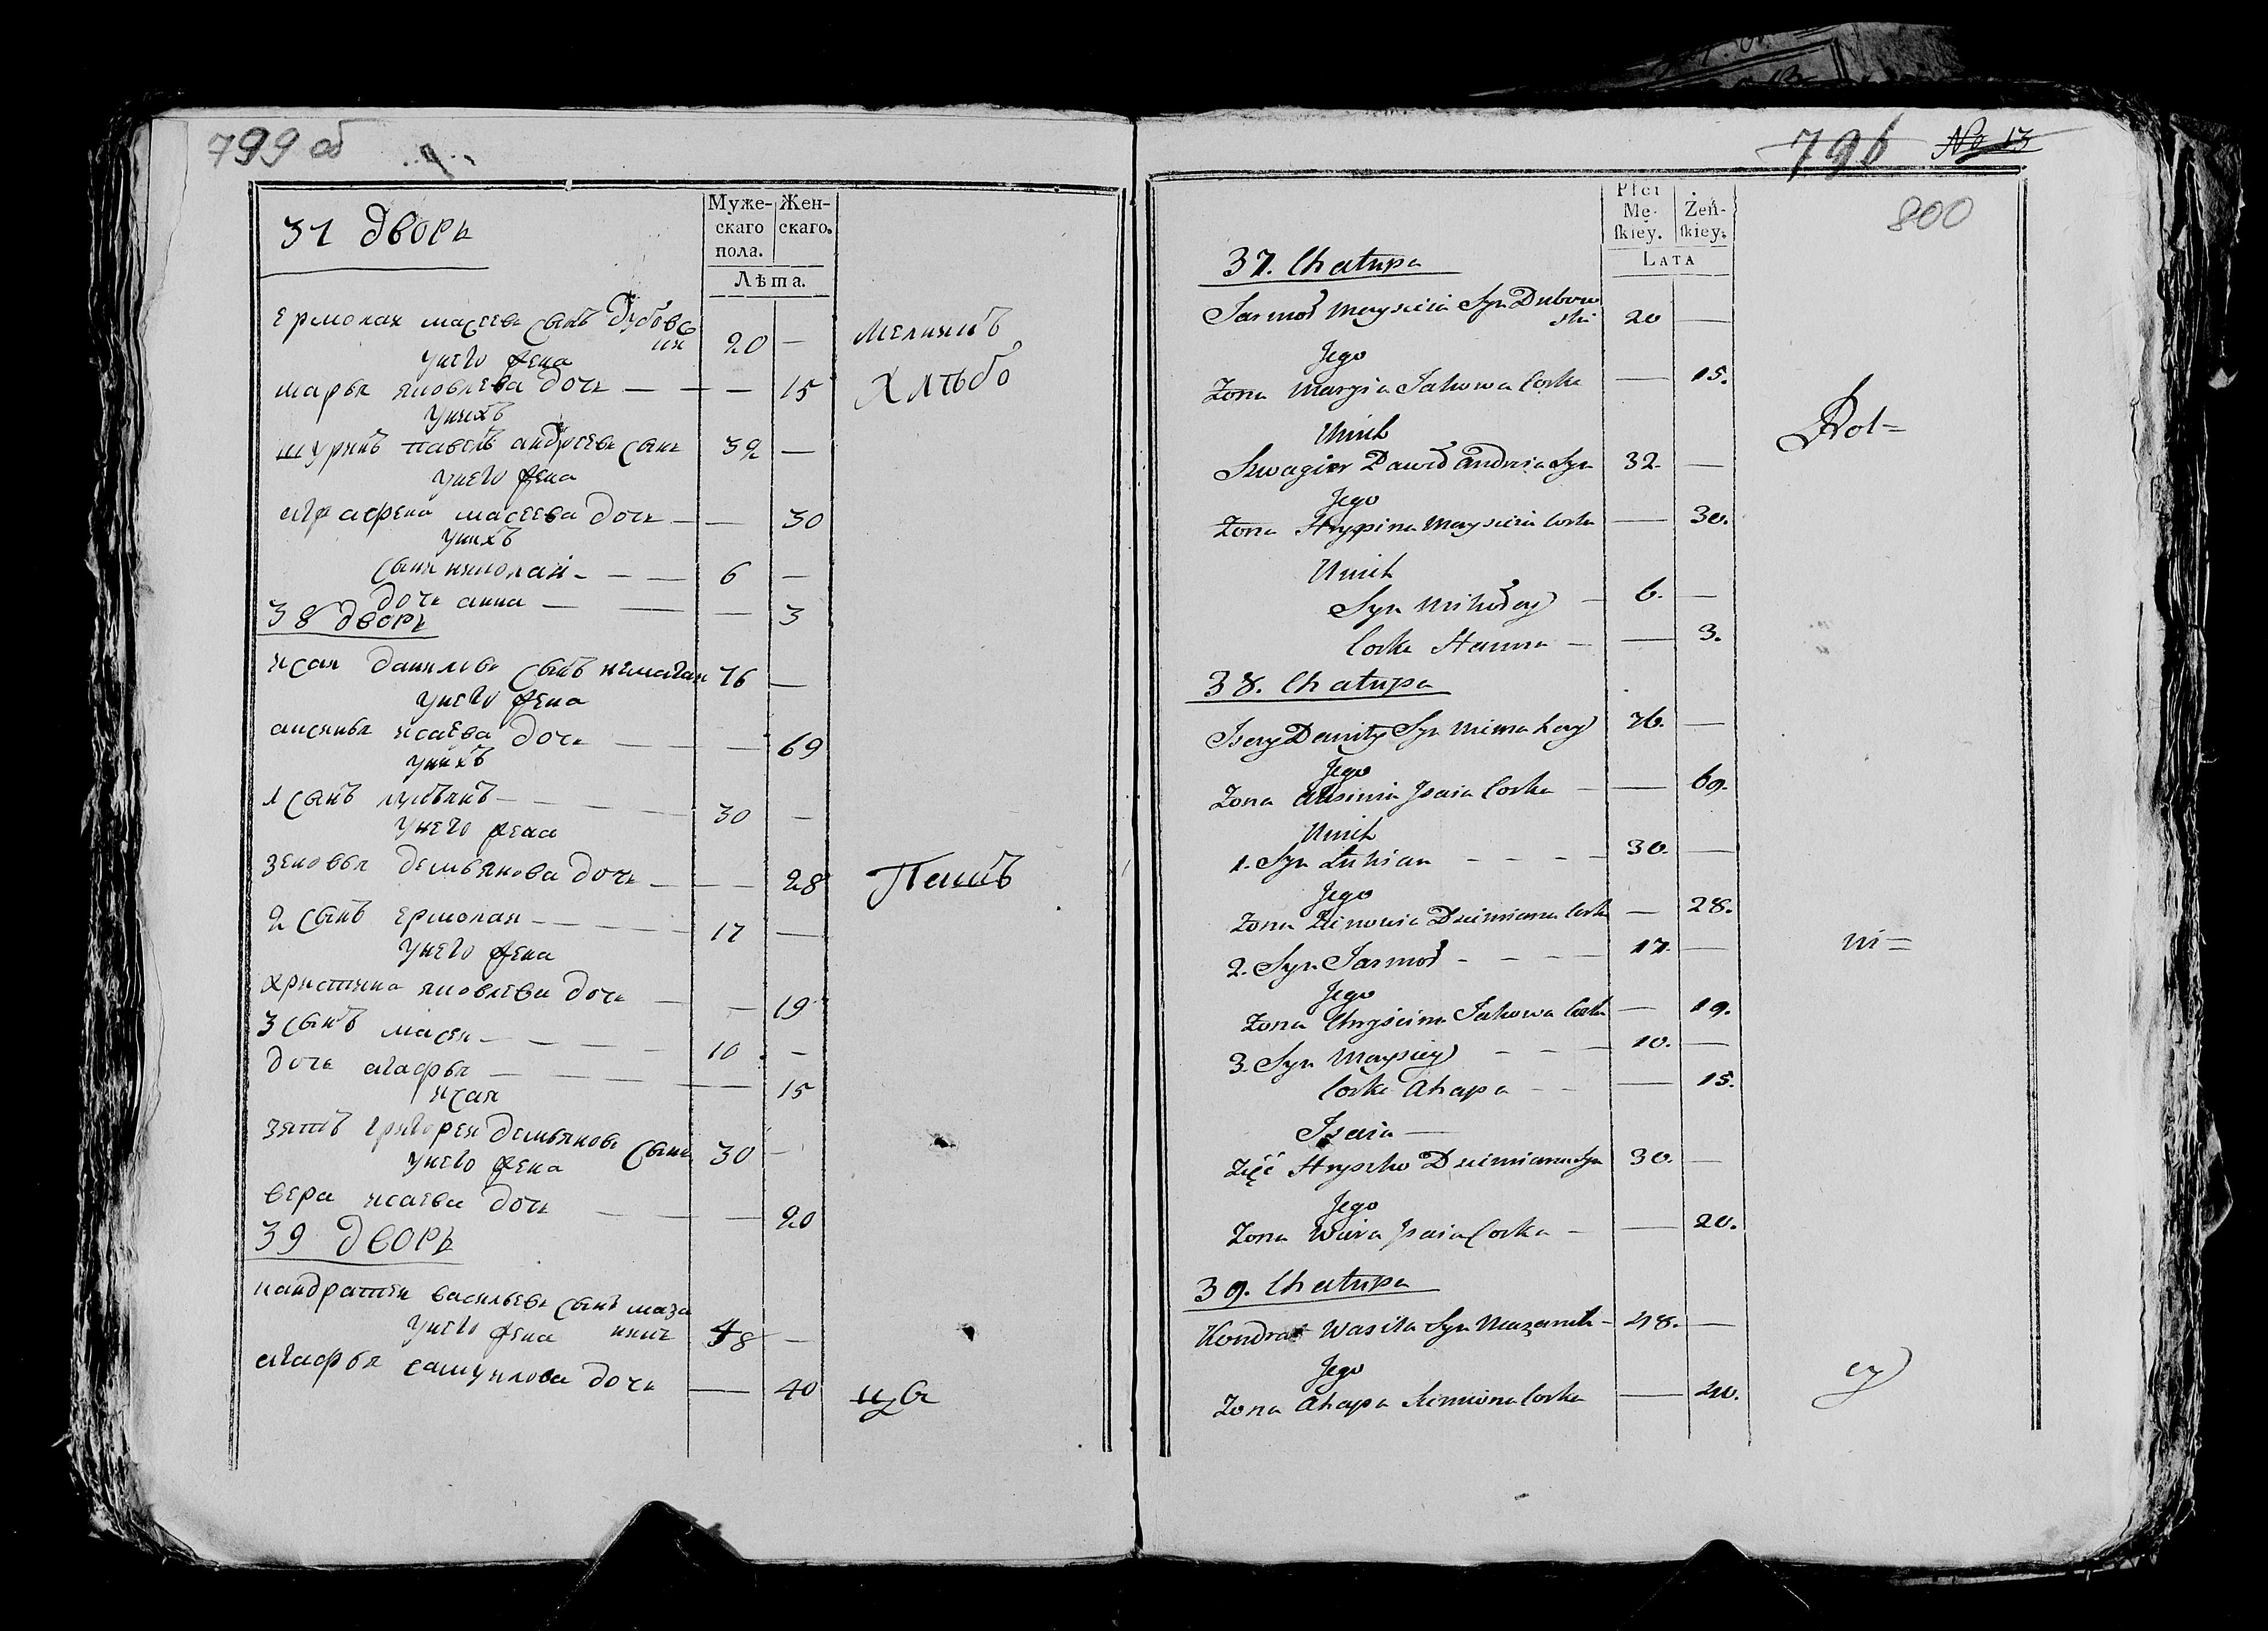 799 об
37 дворъ
Муже-скаго пола. Жен-скаго.
Лѣта.
ермолай масеевъ сынъ дубовс
кия 20 —
мелникъ
у него жена
марья яковлева дочь — — — 15
хлѣбо
у нихъ
шуринъ павелъ андреевъ сынъ 32 —
у него жена
аграфена масеева дочь — — 30
у нихъ
сынъ николай — — — 6 —
дочь анна — — — 3
38 дворъ
исай даниловъ сынъ 76 —
у него жена
аксинья исаева дочь — — 69
у нихъ
1 сынъ лукьянъ — — — 30 —
у него жена
зеновья демьянова дочь — — — 28
Пашъ
2 сынъ ермолай — — — 17 —
у него жена
христина яковлева дочь — — 19
3 сынъ масей — — — 10 —
дочь агафья — — — 15
исая
зять григорей демьяновъ сынъ 30 —
у него жена
вера исаева дочь — — — 20
39 дворъ
кандратей васильевъ сынъ маза
никъ 48 —
у него жена
агафья самуилова дочь — 40
796 No 13
800
Płci Mę-skiey. Żeń-skiey.
LATA
37. Chałupa
Jarmoł Maysieia Syn Dubow
ski 20 —
Jego
Zona Maryia Jakowa Corka — 15.
Rol=
Unich
Szwagier Paweł Andreia Syn 32. —
Jego
Zona Hrypina Maysieia Corka — 30.
Unich
Syn Mikołay — 6. —
Corka Hanna — — 3.
38. Chatupa
Isay Daniły Syn 76. —
Jego
Zona Aksinia Isaia Corka — — 69.
Unich
1. Syn Łukian - - - - 30. —
Jego
Zona Zinowia Dziemiana Corka — 28.
2. Syn Jarmoł - - - - 17. —
ni=
Jego
Zona Chryścina Jakowa Corka — 19.
3. Syn Maysiey - - - 10. —
Corka Ahapa - - — 15.
Isaia —
Zięć Hryszko Dziemiana Syn 30. —
Jego
Zona Wiera Isaia Corka — — 20.
39. Chałupa
Kondrat Wasila Syn Mazanik — 48. —
Jego
Zona Ahapa Corka — 40.
cy